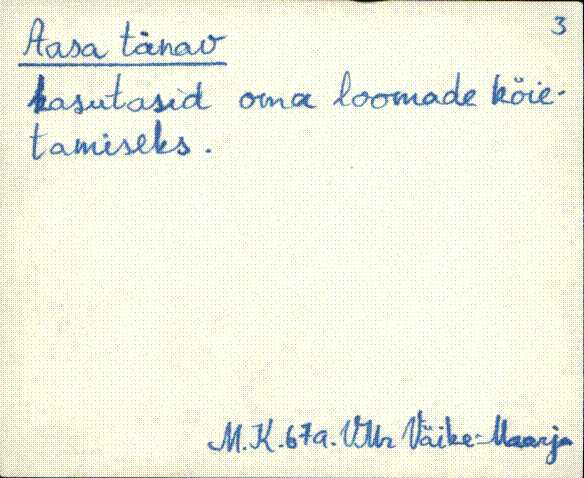 3
Aasa tänav
kasutasid oma loomade köie-
tamiseks.
M.K. 67a. VMr Väike-Maarja